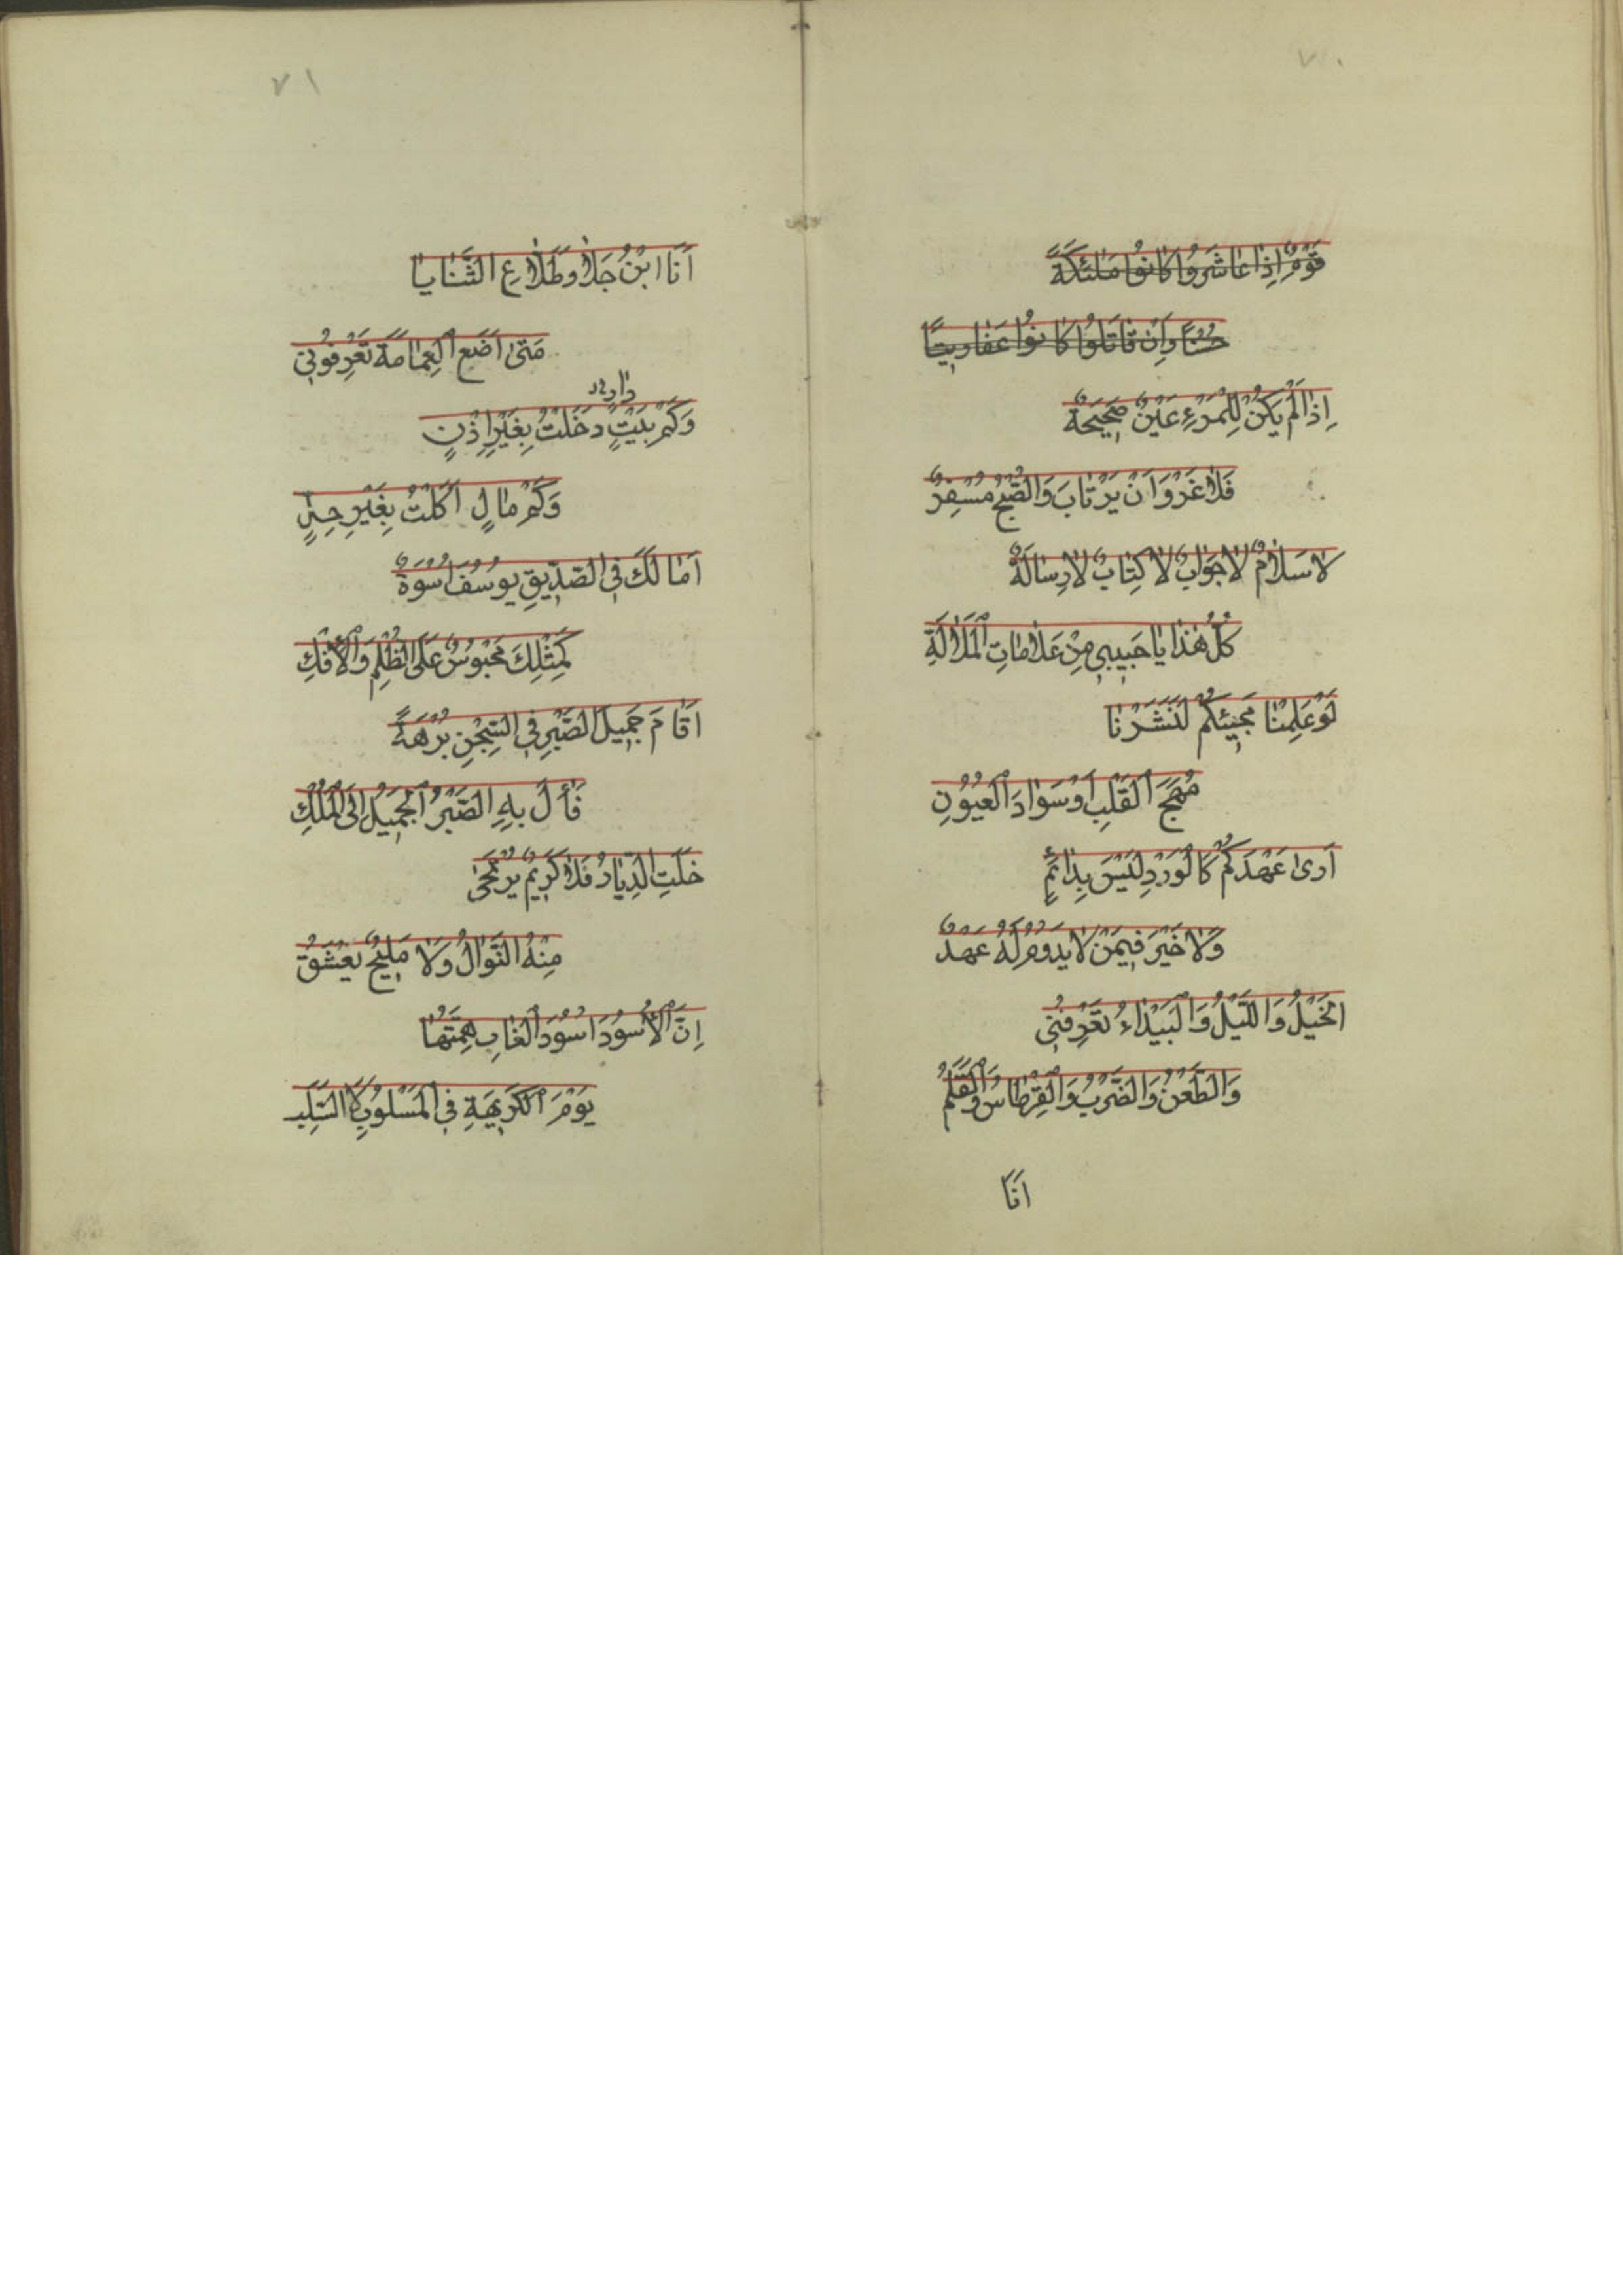 ٧٠
قَوْمٌ اِذَا عَاشَرُوا كَانُوا مَلٰئِكَةً
حُسْنًا وَاِنْ قَاتَلُوا كَانُوا عَفَارِيتًا
اِذَا لَمْ يَكُنْ لِلْمَرْءِ عَيْنٌ صَحِيحَةٌ
فَلَا غَرْوَ اَنْ يَرْتَابَ وَالصُّبْحُ مُسْفِرٌ
لَا سَلَامٌ لَا جَوَابٌ لَا كِتَابٌ لَا رِسَالَةٌ
كُلُّ هٰذَا يَا حَبِيبِي مِنْ عَلَامَاتِ الْمَلَالَةِ
لَوْ عَلِمْنَا مَجِيئَكُمْ لَنَشَرْنَا
مُهَجَ الْقَلْبِ اَوْ سَوَادَ الْعُيُونِ
اَرٰى عَهْدَكُمْ كَالْوَرْدِ لَيْسَ بِدَائِمٍ
وَلَا خَيْرَ فِيمَنْ لَا يَدُومُ لَهُ عَهْدٌ
الْخَيْلُ وَاللَّيْلُ وَالْبَيْدَاءُ تَعْرِفُنِي
وَالطَّعْنُ وَالضَّرْبُ وَالْقِرْطَاسُ وَالْقَلَمُ
اَنَا
٧١
اَنَا ابْنُ جَلَا وَطَلَّاعِ الثَّنَايَا
مَتٰى اَضَعِ الْعِمَامَةَ تَعْرِفُونِي
وَكَمْ بَيْتٍ دَخَلْتُ بِغَيْرِ اِذْنٍ
وَكَمْ مَالٍ اَكَلْتُ بِغَيْرِ حِلٍّ
اَمَا لَكَ فِي الصِّدِّيقِ يُوسُفَ اُسْوَةٌ
كَمِثْلِكَ مَحْبُوسٌ عَلَى الظُّلْمِ وَالْاِفْكِ
اَقَامَ جَمِيلَ الصَّبْرِ فِي السِّجْنِ بُرْهَةً
فَاٰلَ بِهِ الصَّبْرُ الْجَمِيلُ اِلَى الْمُلْكِ
خَلَتِ الدِّيَارُ فَلَا كَرِيمٌ يُرْتَجٰى
مِنْهُ النَّوَالُ وَلَا مَلِيحٌ يُعْشَقُ
اِنَّ الْاُسُودَ اُسُودَ الْغَابِ هِمَّتُهَا
يَوْمَ الْكَرِيهَةِ فِي الْمَسْلُوبِ لَا السَّلَبِ